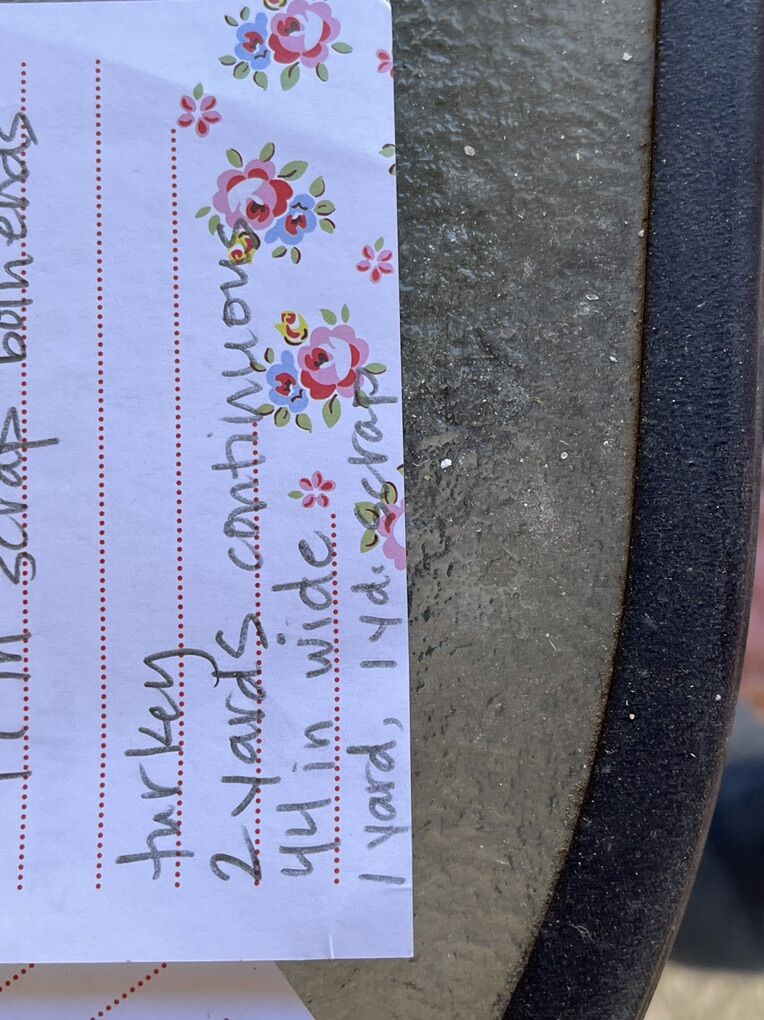 in scrap both ends
turkey
2 yards continuous
44 in wide
1 yard, 1 yd. scrap